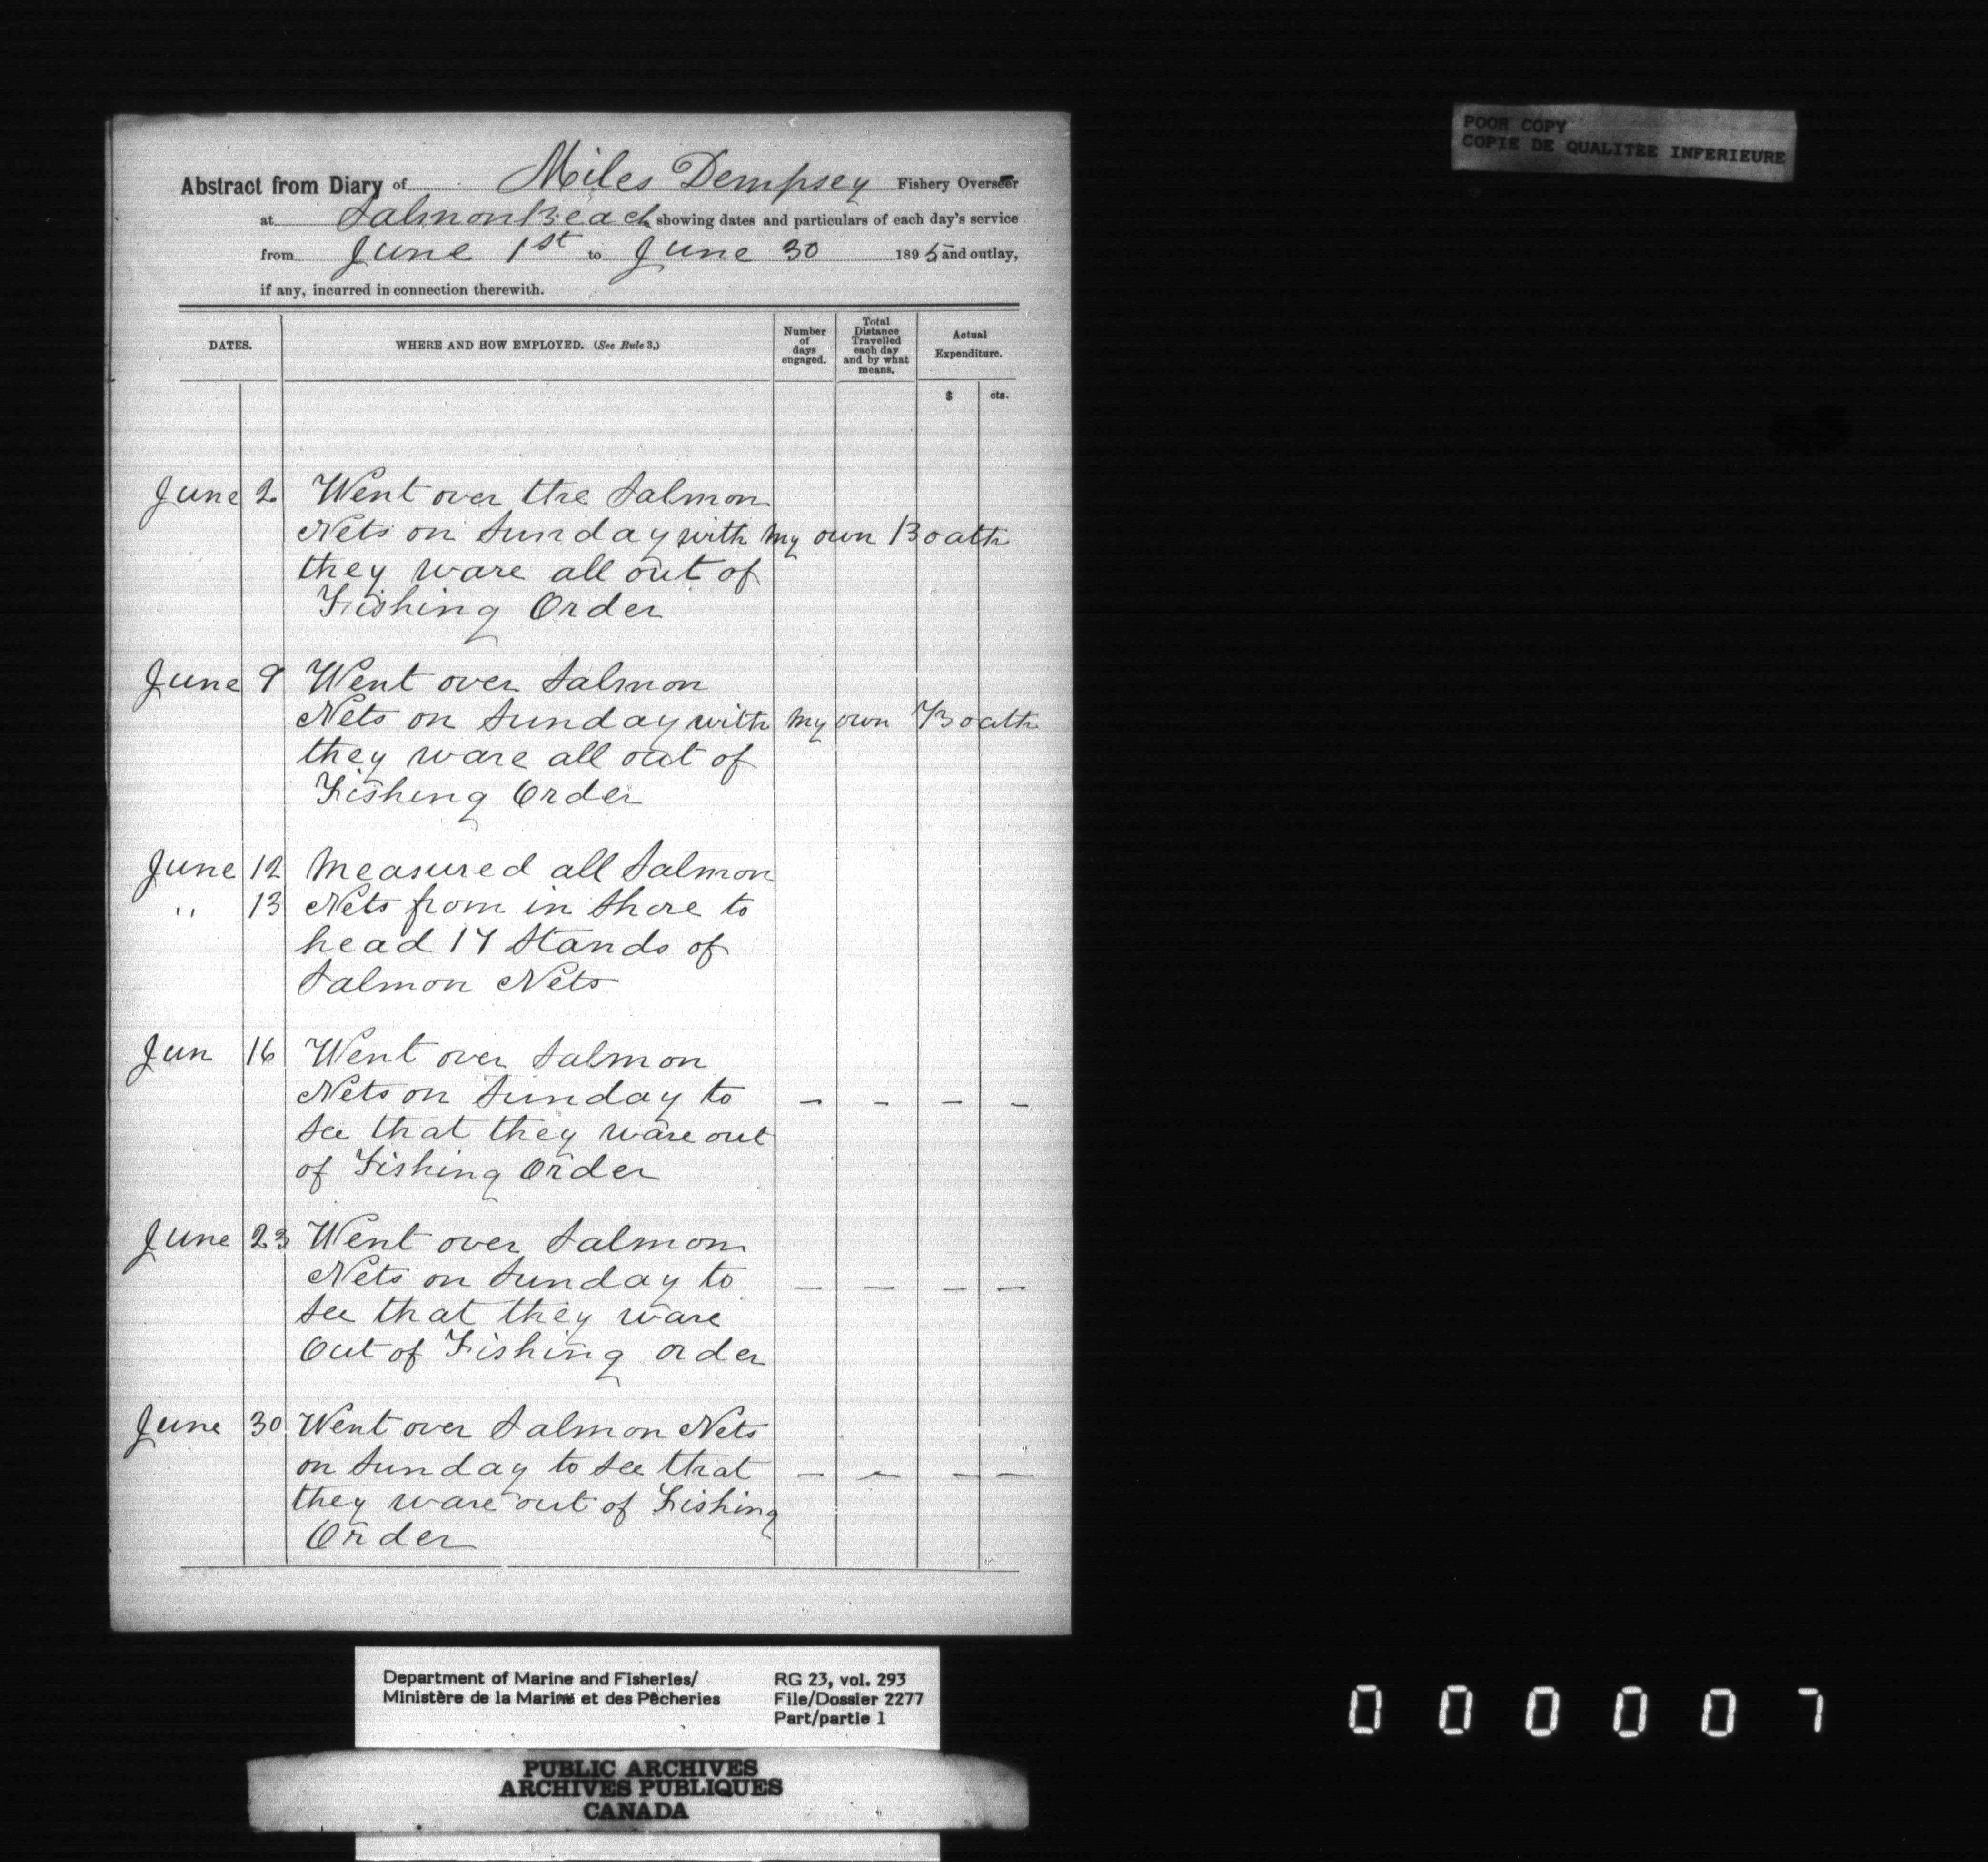 POOR COPY
COPIE DE QUALITEE INFERIEURE
Abstract from Diary of Miles Dempsey Fishery Overseer
at Salmon Beach showing dates and particulars of each day's service
from June 1st to June 30 1895 and outlay,
if any, incurred in connection therewith.
DATES.
WHERE AND HOW EMPLOYED. (See Rule 3,)
Number of days engaged.
Total Distance Travelled each day and by what means.
Actual Expenditure.
$ cts.
June 2 Went over the Salmon
Nets on Sunday with my own Boath
they ware all out of
Fishing Order
June 9 Went over Salmon
Nets on Sunday with my own Boath
they ware all out of
Fishing Order
June 12 Measured all Salmon
" 13 Nets from in Shore to
head 17 Stands of
Salmon Nets
Jun 16 Went over Salmon
Nets on Sunday to — — — —
see that they ware out
of Fishing Order
June 23 Went over Salmon
Nets on Sunday to — — — —
see that they ware
Out of Fishing order
June 30 Went over Salmon Nets
on Sunday to see that — — — —
they ware out of Fishing
Order
Department of Marine and Fisheries/
Ministère de la Marine et des Pêcheries
RG 23, vol. 293
File/Dossier 2277
Part/partie 1
PUBLIC ARCHIVES
ARCHIVES PUBLIQUES
CANADA
000007